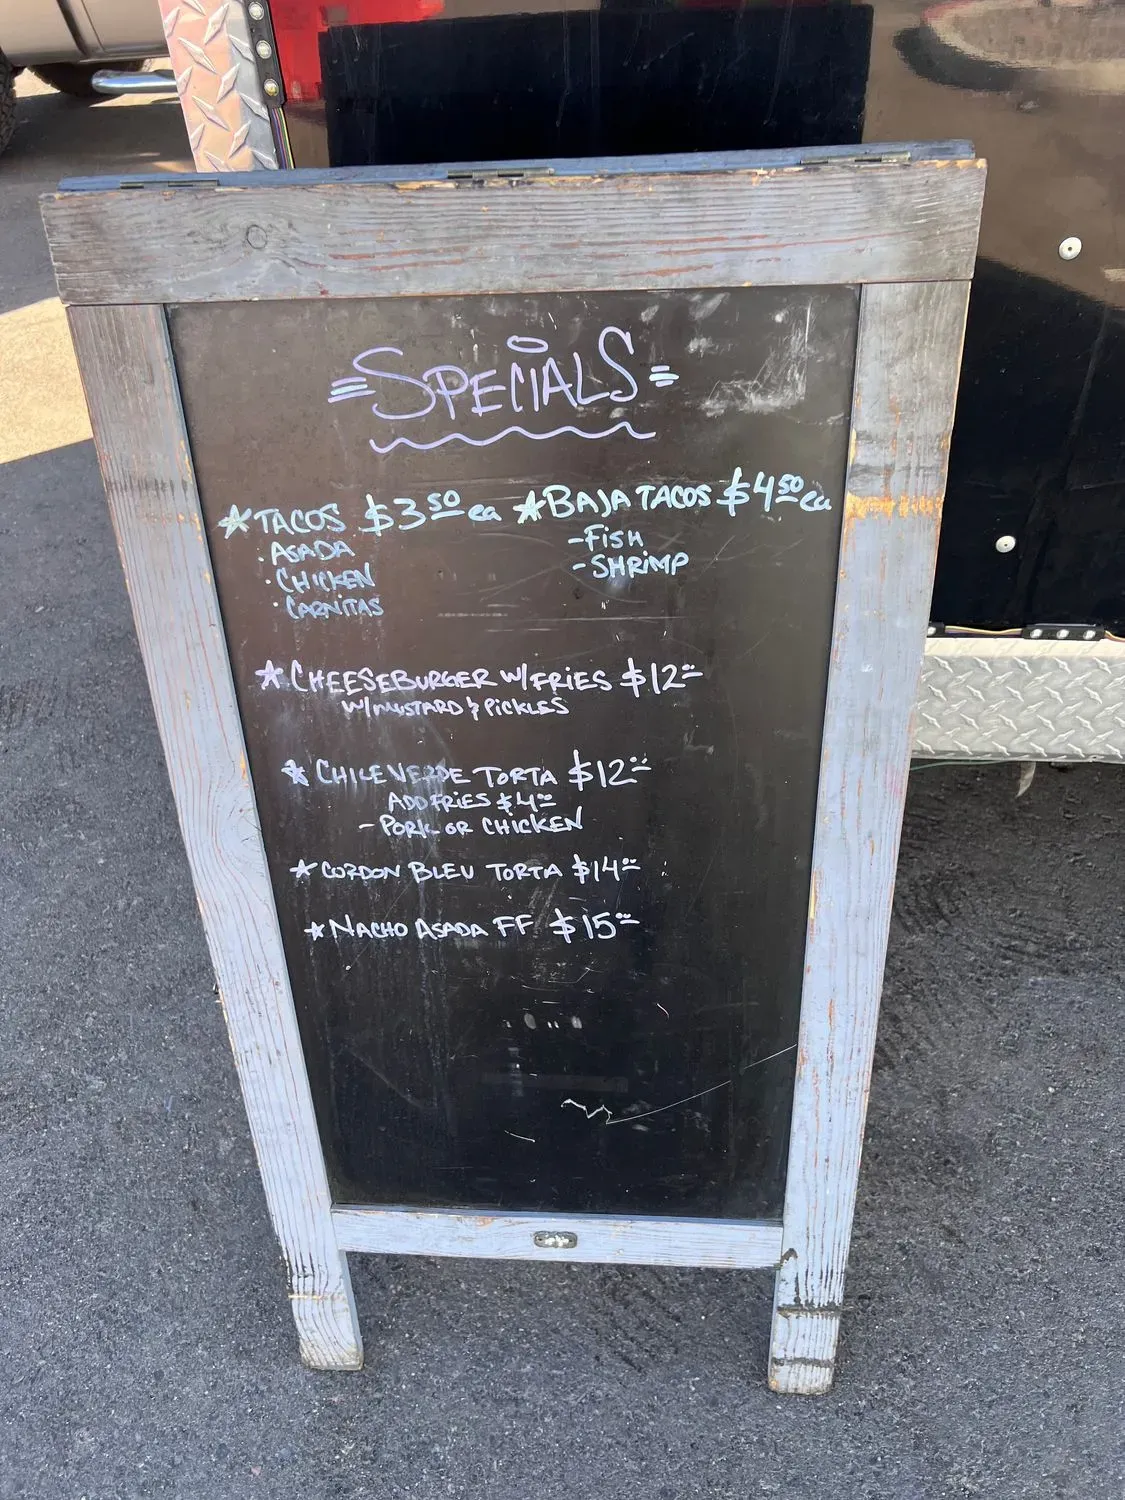 =SPECIALS=
★TACOS $3.50 ea
· ASADA
· CHICKEN
· CARNITAS
★BAJA TACOS $4.50 ea
- FISH
- SHRIMP
★ CHEESEBURGER W/FRIES $12.00
W/MUSTARD & PICKLES
★ CHILE VERDE TORTA $12.00
ADD FRIES $4.00
- PORK OR CHICKEN
★ CORDON BLEU TORTA $14.00
★ NACHO ASADA FF $15.00